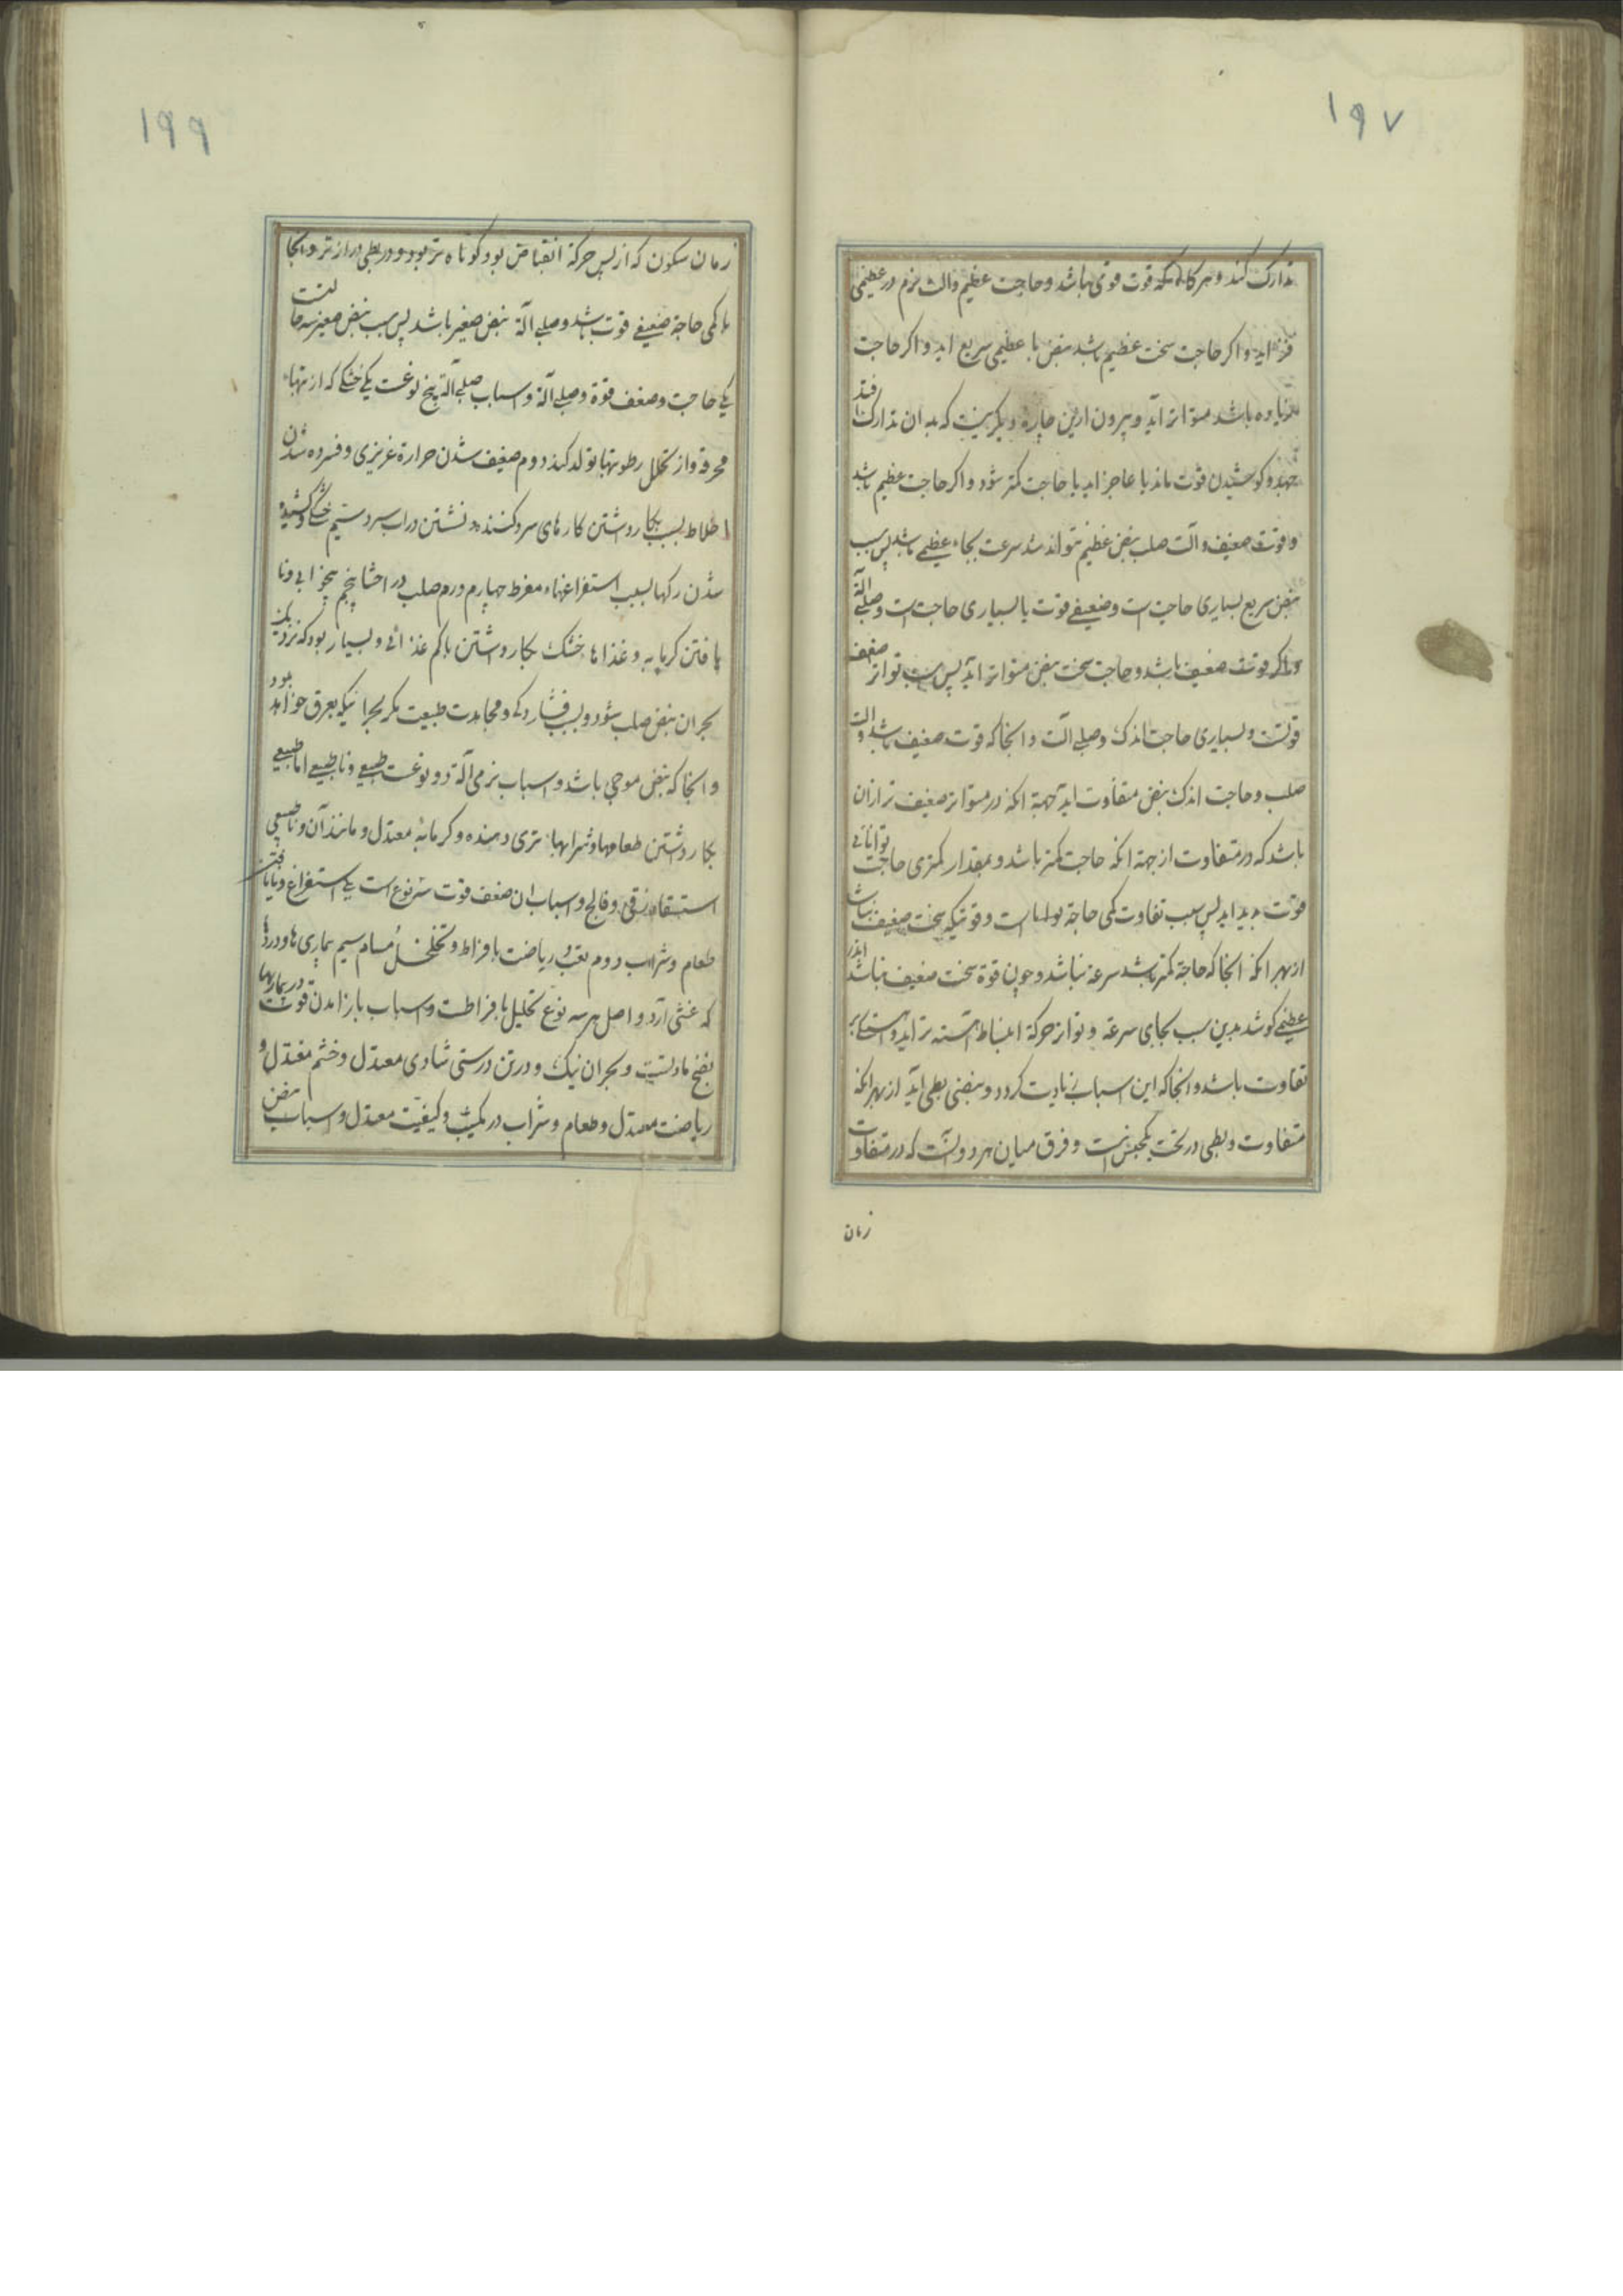 ۱۹۷
تدارک کند و هرکاه که قوت قوی باشد و حاجت عظیم والت نرم در عظیمی
فزاید و اکر حاجت سخت عظیم باشد نبض با عظیمی سریع اید و اکر حاجت
زیاده باشد متواتر آید و بیرون ازین چاره دیکر نیست که بدان تدارک افتد
جهد و کوشیدن قوت ماند یا عاجز اید یا حاجت کمتر شود و اکر حاجت عظیم باشد
و قوت ضعیف و آلت صلب نبض عظیم نتواند شد سرعت بجاء عظیمی باشد پس سبب
نبض سریع بسیاری حاجت است و ضعیفی قوت یا بسیاری حاجت است و صلبی آلة
و اکر قوت ضعیف باشد و حاجت سخت نبض متواتر اید پس سبب تواتر ضعف
قوتست و بسیاری حاجت اندک وصلبی آلت و انجا که قوت ضعیف باشد و الت
صلب و حاجت اندک نبض متفاوت اید جهة انکه در متواتر ضعیف تر ازان
باشد که در متفاوت از جهة انکه حاجت کمتر باشد و بمقدار کمتری حاجت توانائی
قوت پدید اید پس سبب تفاوت کمی حاجة است و قوتیکه سخت ضعیف نباشد
از بهر انکه انجا که حاجة کمتر باشد سرعة نباشد و چون قوة سخت ضعیف نباشد اندر
عظیمی کوشد بدین سبب بجای سرعة و تواتر حرکة انبساط اهسته تر اید و
تفاوت باشد و انجا که این اسباب زیادت کردد و نبضی بطی اید از بهر انکه
متفاوت و بطی در تحت یکجنس است و فرق میان هر دو آنست که در متفاوت
زمان
۱۹۹
زمان سکون که از پس حرکة انقباض بود کوتاه تر بود و در بطی دراز تر و انجا
با کمی حاجة ضعیفی قوت باشد و صلبی آلة نبض صغیر باشد پس سبب نبض صغیر سه
یکی حاجت و ضعف قوة و صلبی آلة و اسباب صلبی آلة پنج نوعست یکی خشکی که از تبهاء
محرقه و از تحلل رطوبتها تولد کند دوم ضعیف شدن حرارة غریزی و فسرده شدن
اخلاط بسبب بکار داشتن کارهای سرد کننده و نشستن دراب سرد سیم خشک و کشیده
شدن رکها بسبب استفراغهاء مفرط چهارم ورم صلب در احشا پنجم بیخوابی و نا
یافتن کرمابه و غذاها خشک بکار داشتن یا کم غذائی و بسیار بود که نزدیک
بحران نبض صلب شود و بسبب فشاردکی و مجاهدت طبیعت مکر بحرانیکه بعرق خواهد بود
و انجا که نبض موجی باشد و اسباب نرمی آلة دو نوعست طبیعی و نا طبیعی اما طبیعی
بکار داشتن طعامها و شرابها تری دهنده و کرمابه معتدل و مانند آن و نا طبیعی
استسقاء زقی و فالج و اسباب ان ضعف قوت سه نوع است یکی استفراغ و نایافتن
طعام و شراب دوم تعب و ریاضت بافراط و تخلخل مسام سیم بیماری ها و دردها
که غشی آرد و اصل هر سه نوع تحلیل بافراطست و اسباب بازامدن قوت در بیماریها
نضج مادتست و بحران نیک و در تن درستی شادی معتدل و خشم معتدل و
ریاضت معتدل و طعام و شراب در کمیت و کیفیت معتدل و اسباب نبض